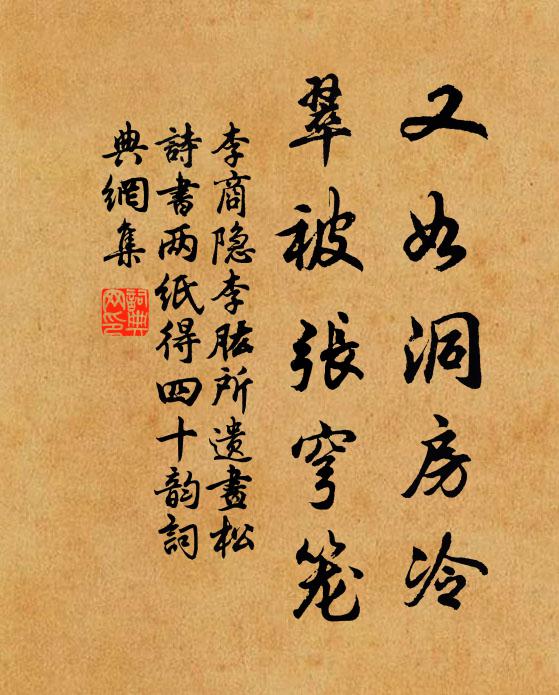 又如洞房冷
翠被張穹笼
李商隐李肱所遺畫松
詩書两紙得四十韵詞
典網集
詞典
网印